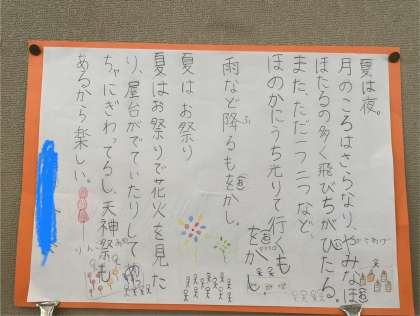 夏は夜。
月のころはさらなり、やみなほ
ほたるの多く飛びちがひたる。
また、ただ一つ二つなど、
ほのかにうち光りて行くも
をかし。
雨など降るもをかし。
ふ
夏は お祭り
夏はお祭りで花火を見た
り、屋台がでていたりして
ちゃにぎわってるし、天神祭も
あるから楽しい。